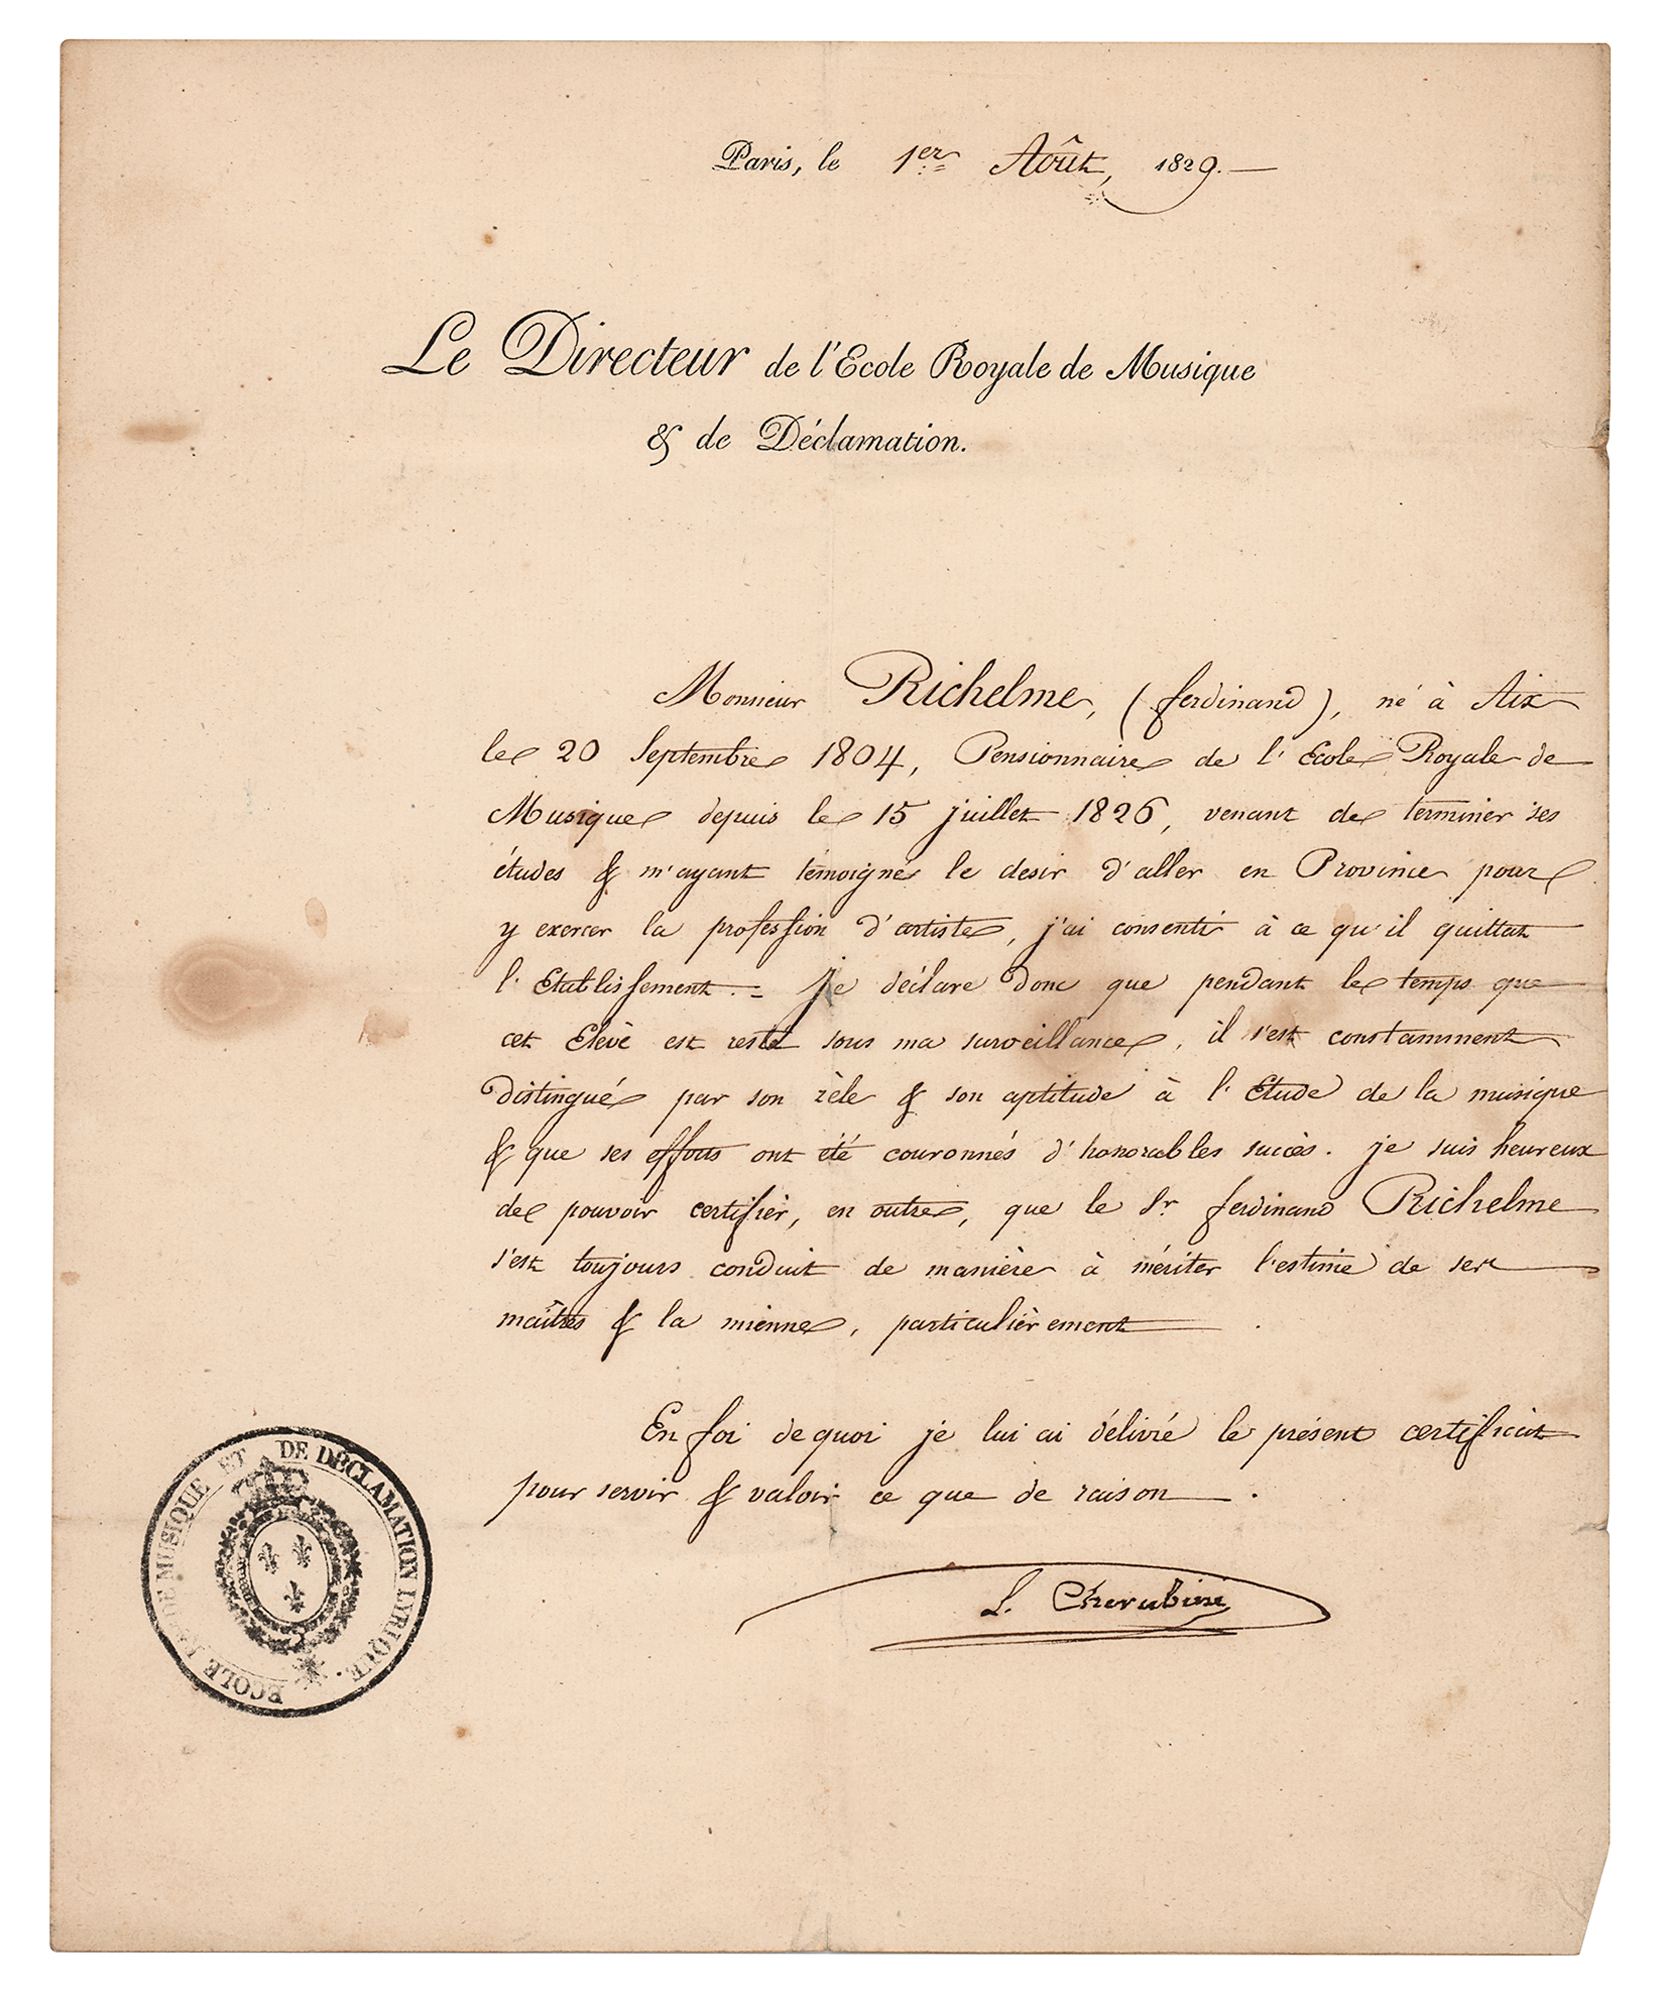 Paris, le 1er Août, 1829.
Le Directeur de l'Ecole Royale de Musique
& de Déclamation.
Monsieur Richelme, (ferdinand), né à Aix
le 20 Septembre 1804, Pensionnaire de l'Ecole Royale de
Musique depuis le 15 juillet 1826, venant de terminer ses
études & m'ayant témoigné le desir d'aller en Province pour
y exercer la profession d'artiste, j'ai consenti à ce qu'il quittat
l'Etablissement. = je déclare donc que pendant le temps que
cet Elève est resté sous ma surveillance, il s'est constamment
distingué par son zèle & son aptitude à l'Etude de la musique
& que ses efforts ont été couronnés d'honorables succès. je suis heureux
de pouvoir certifier, en outre, que le Sr. ferdinand Richelme
s'est toujours conduit de manière à mériter l'estime de ses
maîtres & la mienne, particulièrement.
En foi de quoi je lui ai délivré le présent certificat
pour servir & valoir ce que de raison.
L. Cherubini
ECOLE DE MUSIQUE ET DE DÉCLAMATION LYRIQUE.